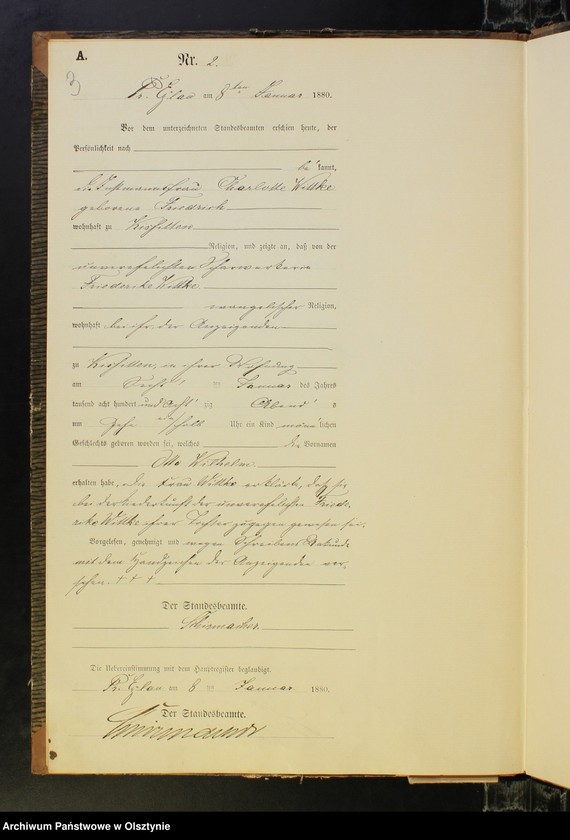 A.
Nr. 2.
3
Pr. Eylau am 8ten Januar 1880.
Vor dem unterzeichneten Standesbeamten erschien heute, der
Persönlichkeit nach
be kannt,
Charlotte Wittke
geborene Friedrich
wohnhaft zu Kissitten
Religion, und zeigte an, daß von der
unverehelichten
Friederike Wittke
evangelischer Religion,
wohnhaft bei ihr, der Anzeigenden
zu Kissitten, in ihrer Wohnung
am Januar des Jahres
tausend acht hundert und achtzig Abends
um Zehn ein halb Uhr ein Kind männlichen
Geschlechts geboren worden sei, welches die Vornamen
Otto Wilhelm
erhalten habe. Die Frau Wittke erklärte, daß sie
bei der Niederkunft der unverehelichten Friede-
rike Wittke ihrer Tochter zugegen gewesen sei.
Vorgelesen, genehmigt und wegen Schreibens
mit dem Handzeichen der Anzeigenden ver-
sehen. † † †
Der Standesbeamte.
Die Uebereinstimmung mit dem Hauptregister beglaubigt.
Pr. Eylau am 8 ten Januar 1880.
Der Standesbeamte.
Archiwum Państwowe w Olsztynie